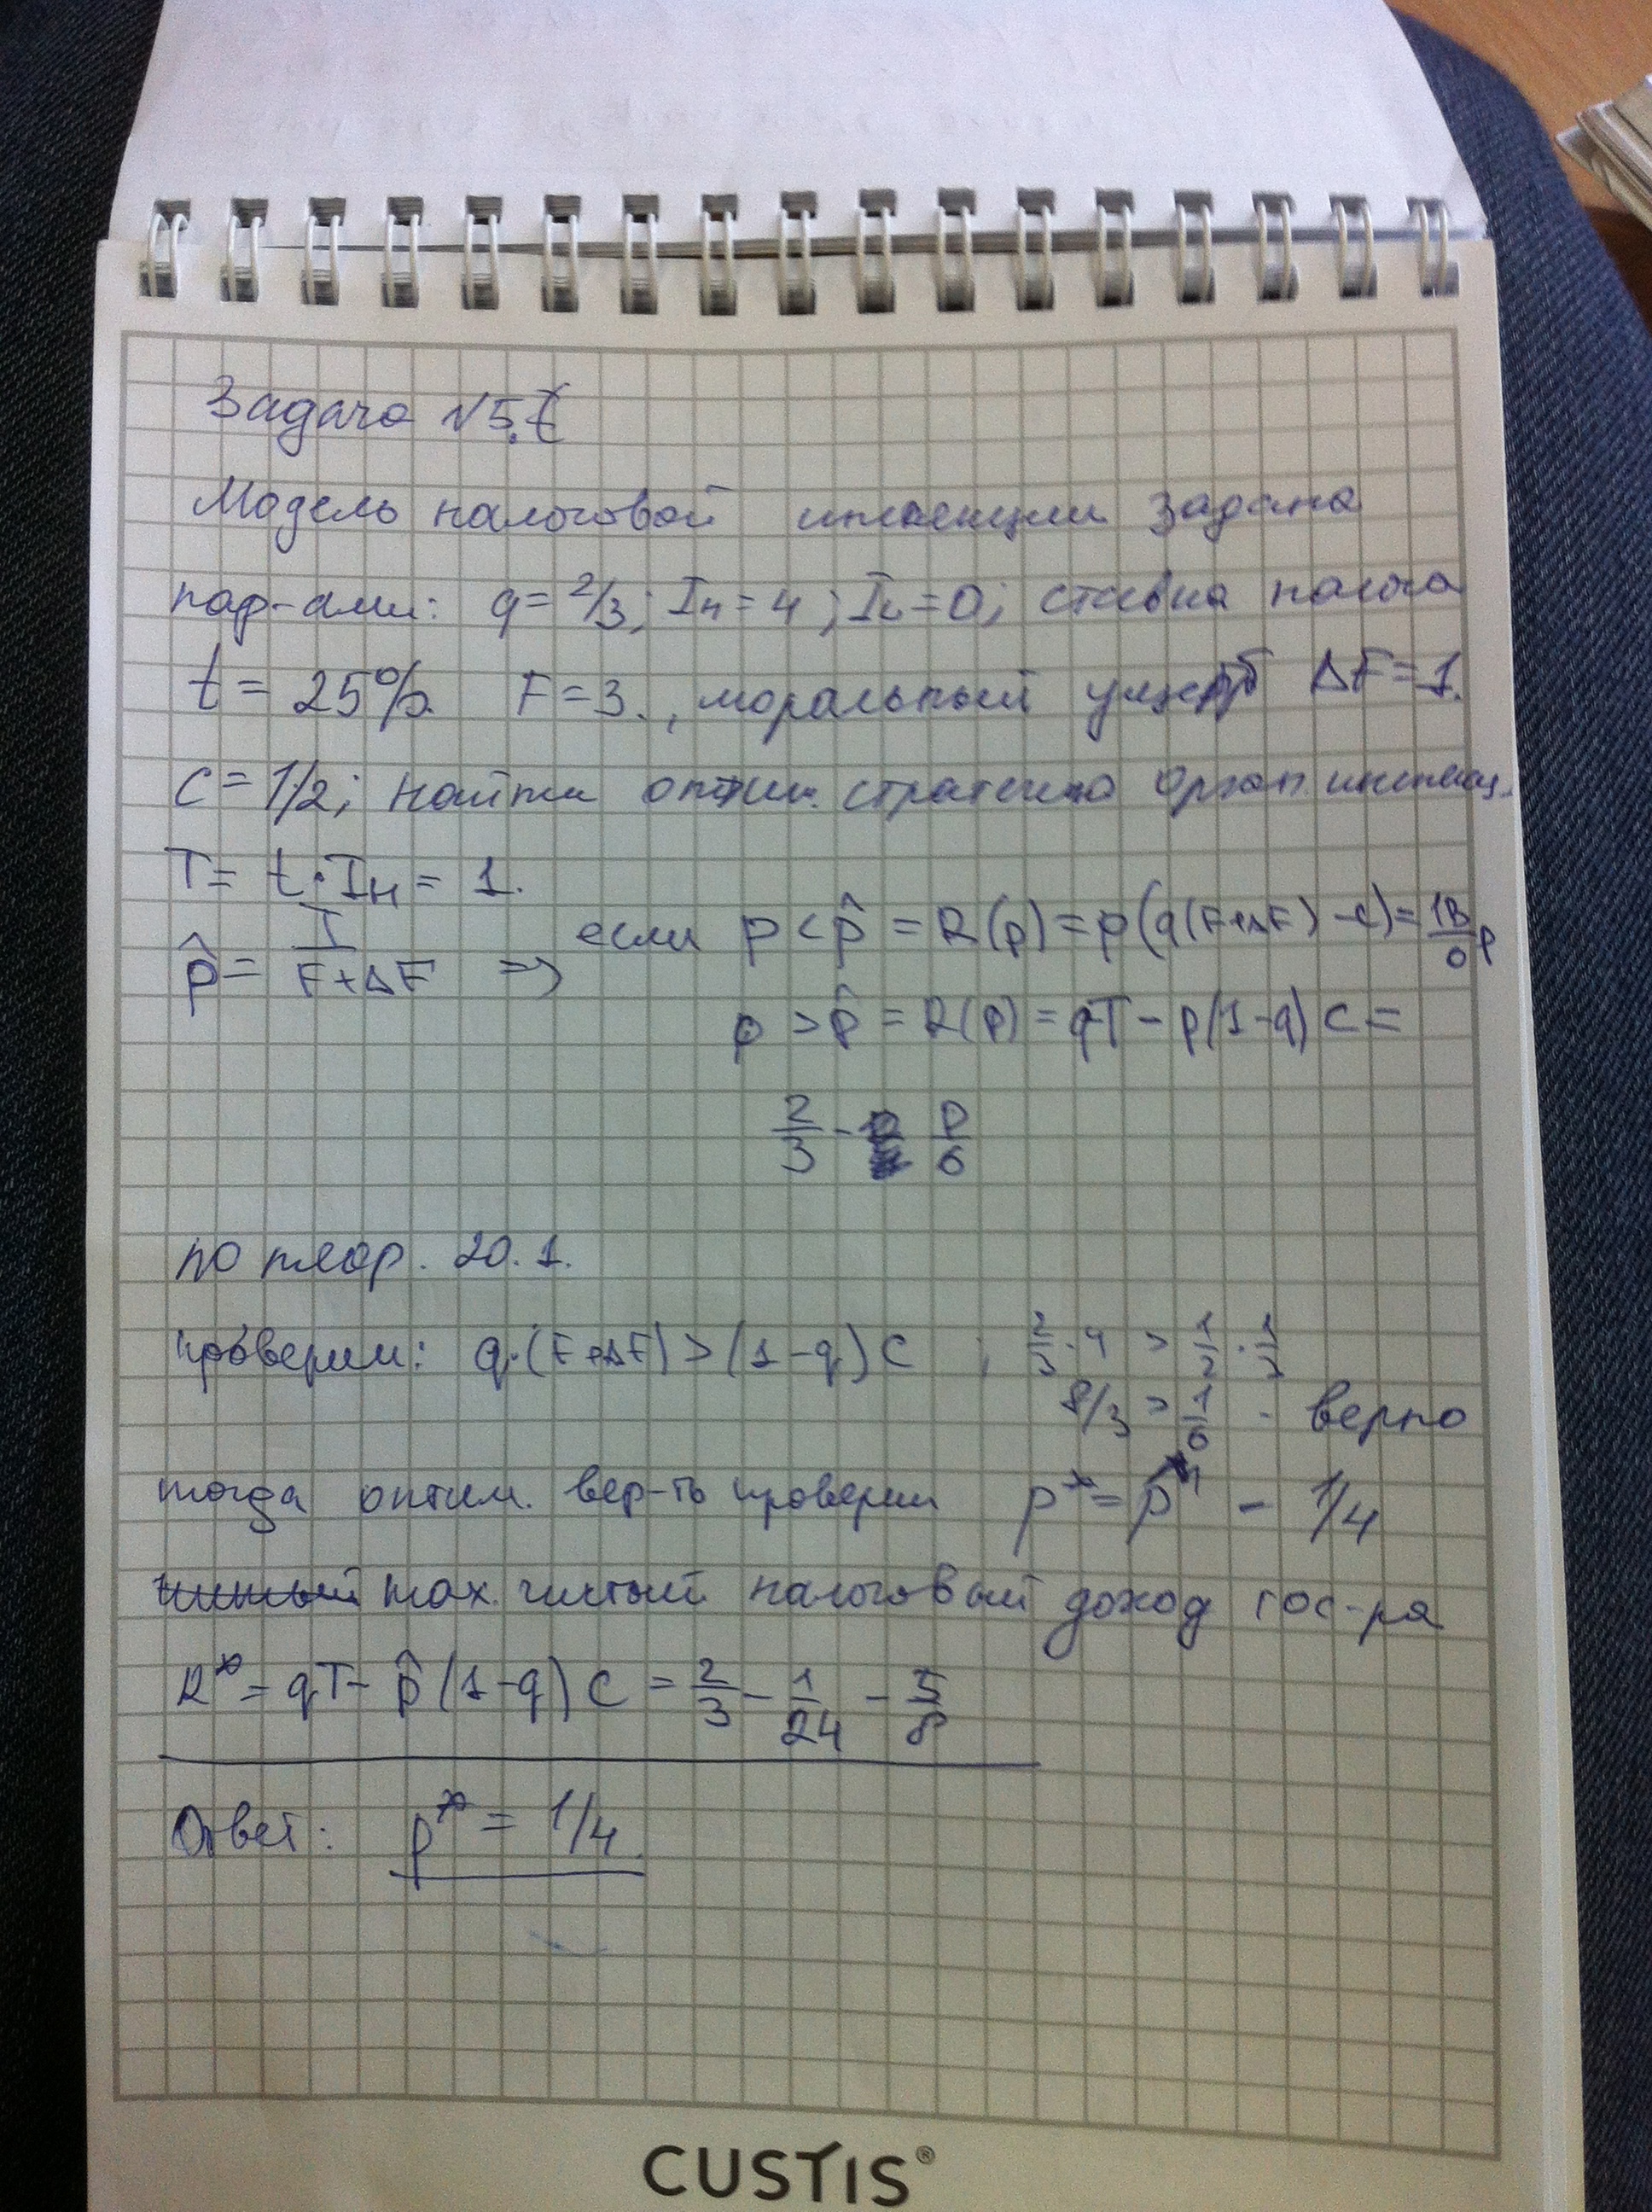 Задача №5.
Модель налоговой инспекции задана
пар-ами: q = 2/3; Iн = 4; IL = 0; ставка налога
t = 25%. F = 3., моральный ущерб ΔF = 1.
C = 1/2; найти оптим. стратегию орган. инспекц.
T = t · Iн = 1.
p̂ = T/(F+ΔF) ⇒ если p < p̂ = R(p) = p(q(F+ΔF) - c) = 13/6 p
p > p̂ = R(p) = qT - p(1-q) C =
2/3 - p/6
по теор. 20.1.
проверим: q·(F+ΔF) > (1-q) C ; 2/3 · 4 > 1/2 · 1/3
8/3 > 1/6 - верно
тогда оптим. вер-ть проверки p* = p̂ = 1/4
max. чистый налоговый доход гос-ва
R* = qT - p̂ (1-q) C = 2/3 - 1/24 = 5/8
Ответ: p* = 1/4.
CUSTIS®